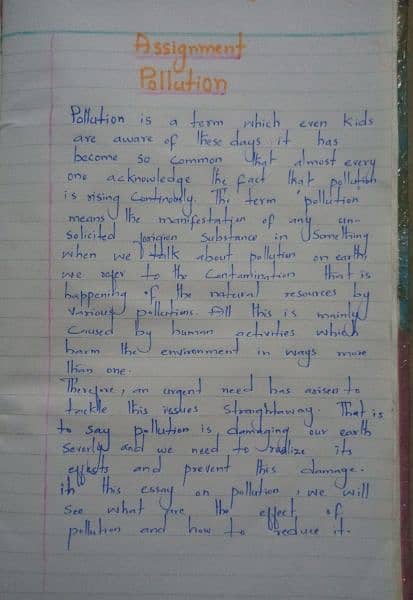 Assignment
Pollution
Pollution is a term which even kids
are aware of these days it has
become so common that almost every
one acknowledge the fact that pollution
is rising continously. The term 'pollution
means the manifestation of any un-
solicited foreign substance in something
when we talk about pollution on earth,
we refer to the contamination that is
happening of the natural resources by
various pollutions. All this is mainly
caused by human activities which
harm the environment in ways more
than one.
Therefore, an urgent need has arisen to
tackle this issues straightaway. That is
to say pollution is damaging our earth
severly and we need to realize its
effects and prevent this damage.
in this essay on pollution, we will
see what are the effect of
pollution and how to reduce it.